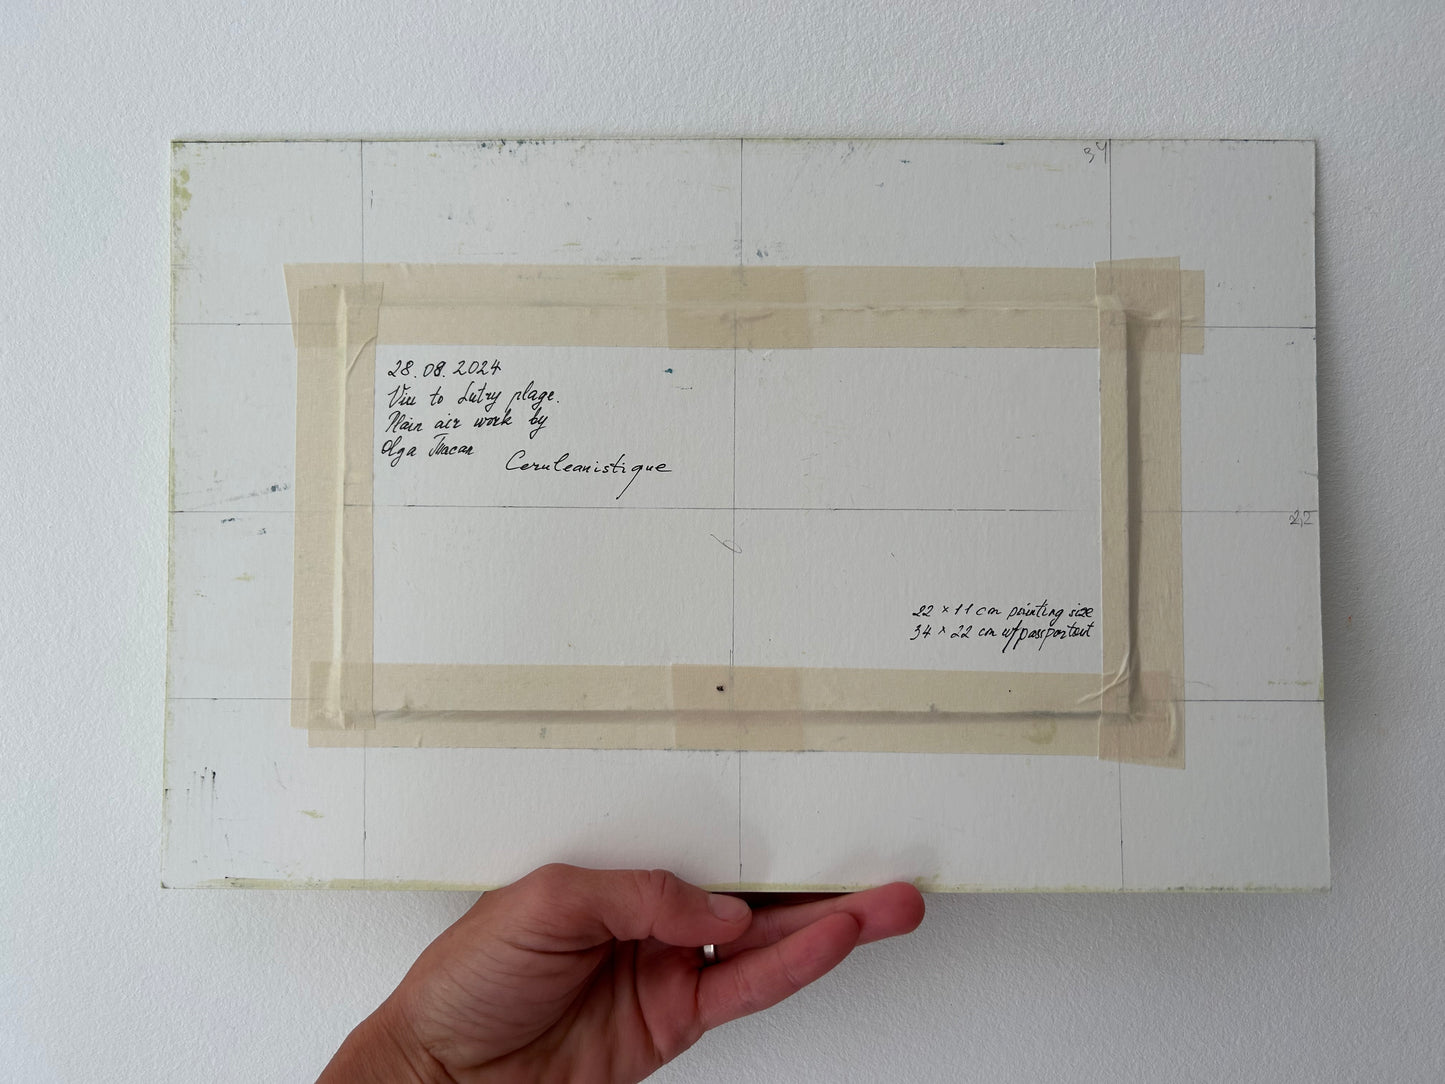 34
28.08.2024
View to Lutry plage.
Plain air work by
Olga
Ceruleanistique
22
22 × 11 cm painting size
34 × 22 cm w/passportout